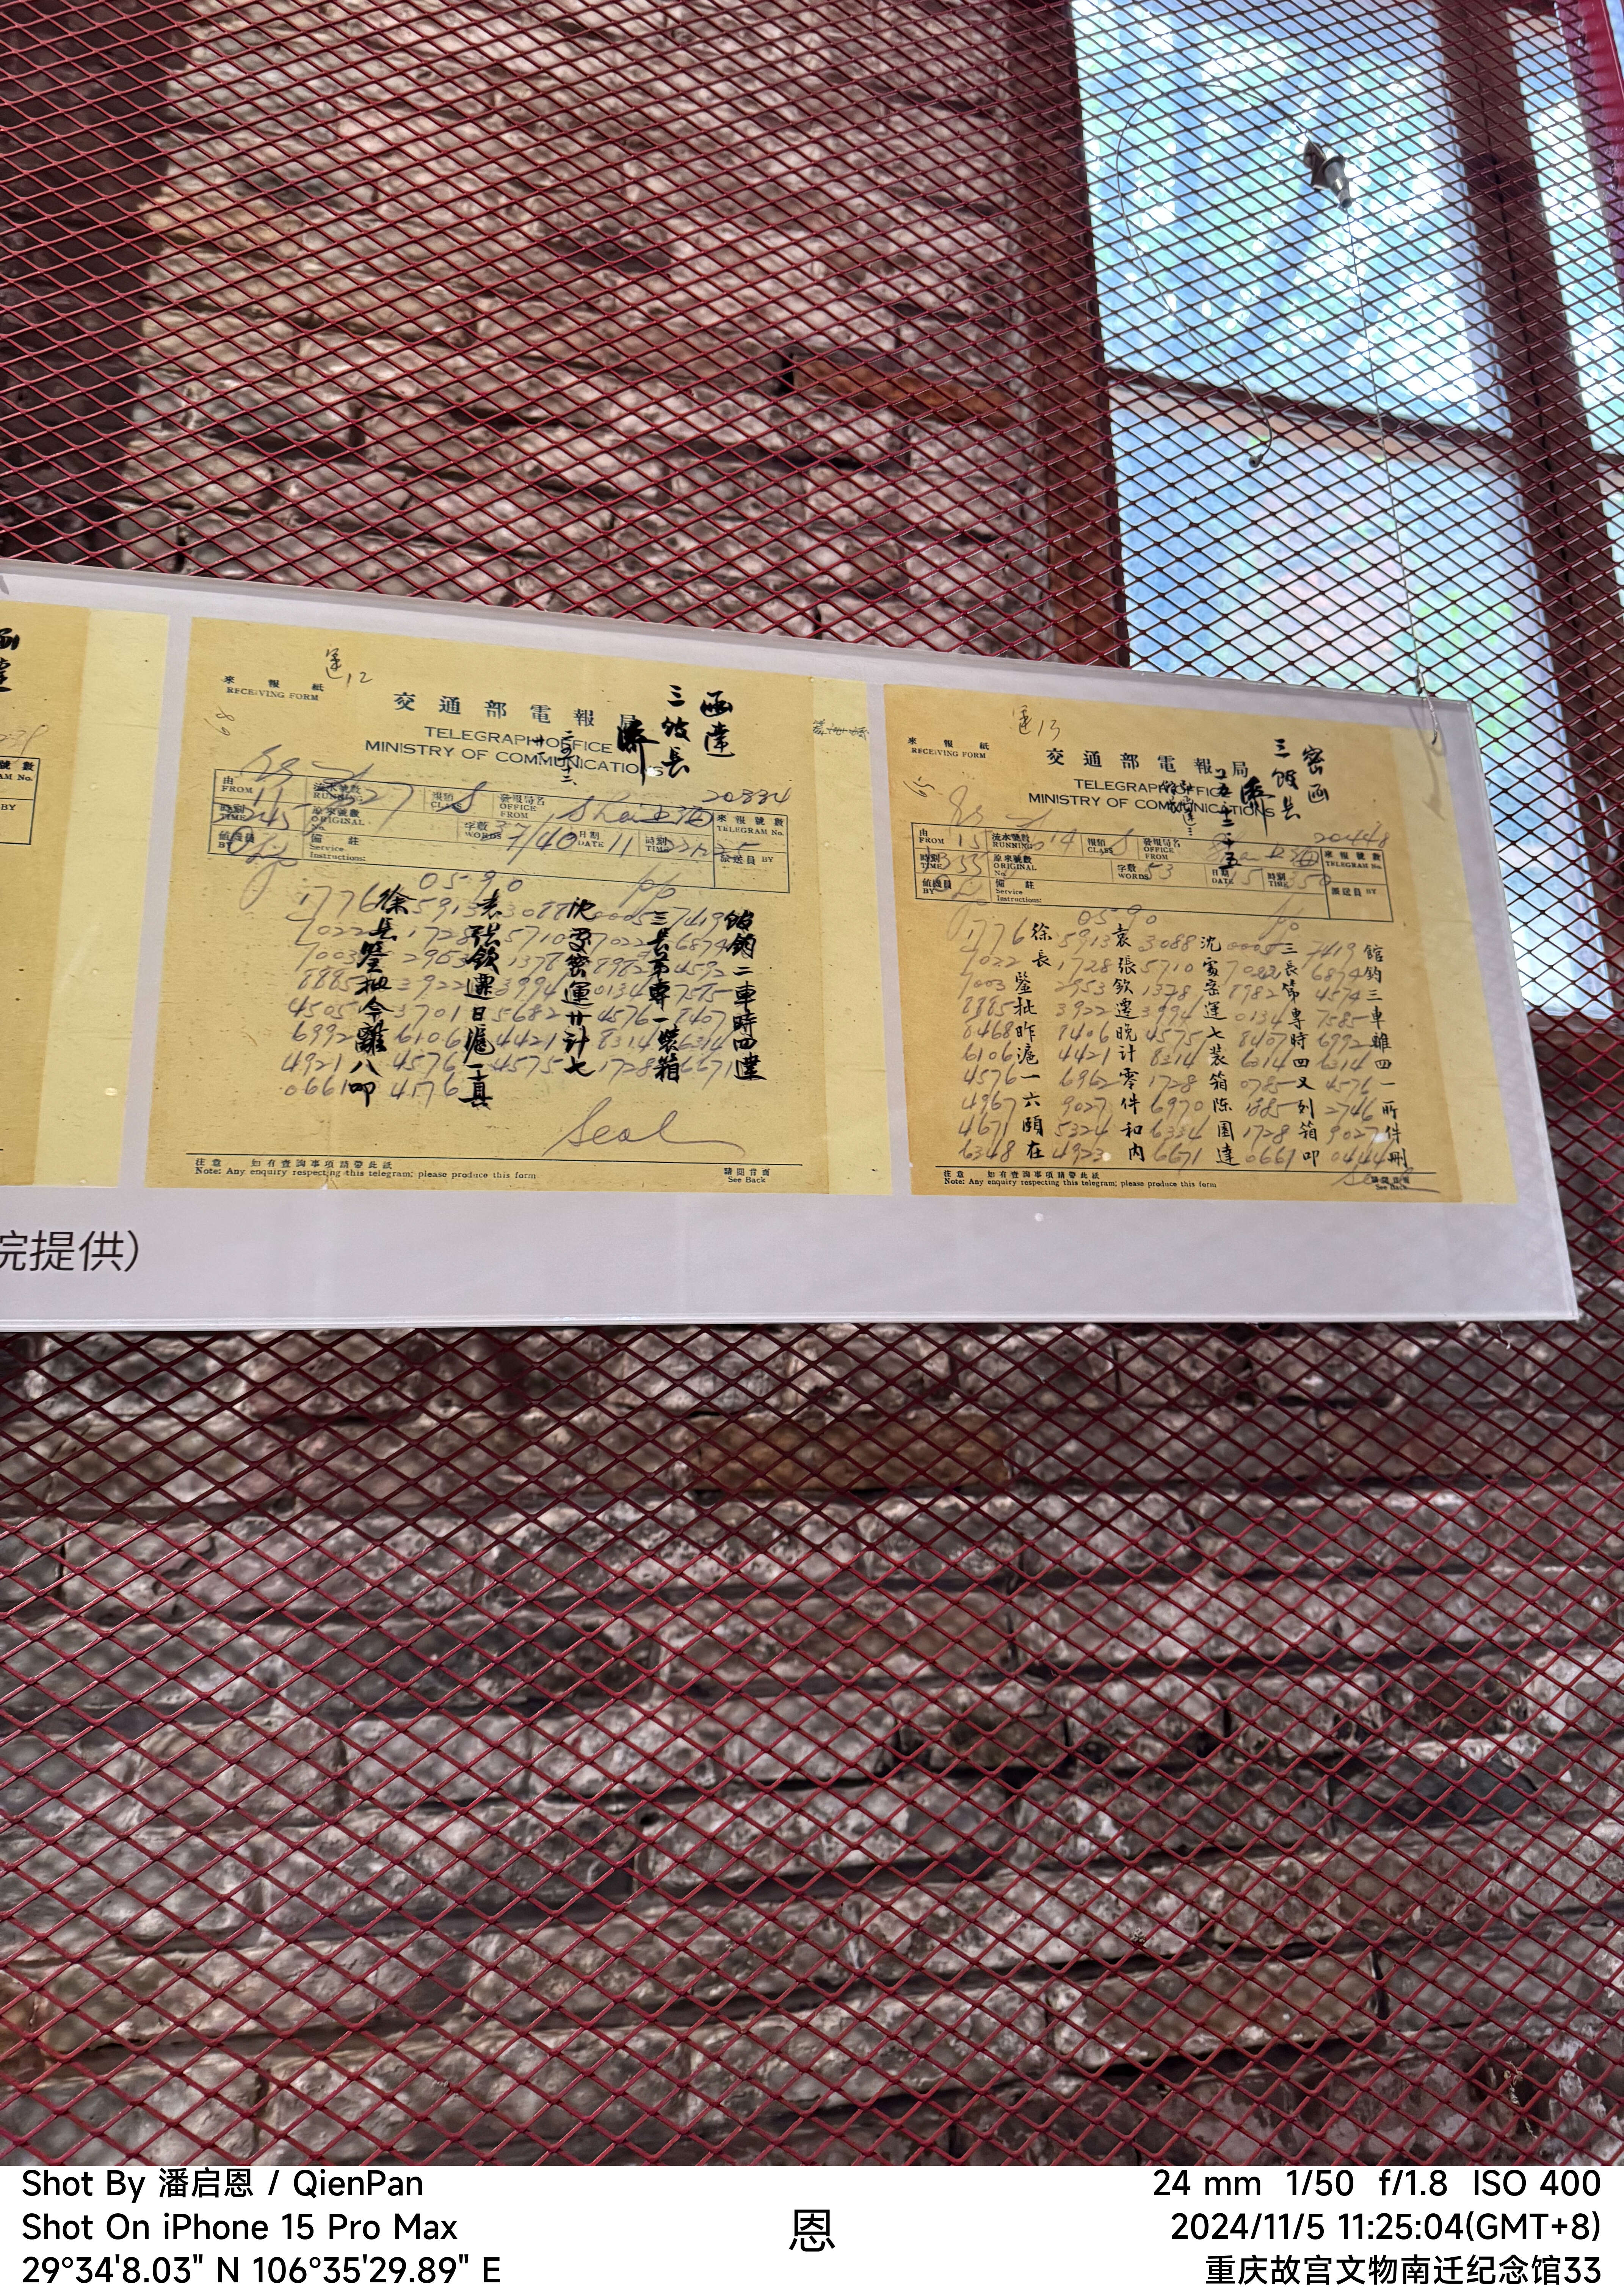 來報紙
RECEIVING FORM
運12
交通部電報局
TELEGRAPH OFFICE
MINISTRY OF COMMUNICATIONS
三館長
函達
由
FROM
流水號數
RUNNING
報類
CLASS
發報局名
OFFICE
FROM
20834
來報號數
TELEGRAM No.
時刻
TIME
原來號數
ORIGINAL
No.
字數
WORDS
37/40
日期
DATE
11
時刻
TIME
派送員 BY
值機員
BY
備註
Service
Instructions:
0590
1776徐 5913袁 3088沈 0005三 7419館
7022長 1728張 5710 7022長 6874鈞
7003鑒 2953欽 1378密 8982第 4592二
8885批 3922遷 3994運 0134專 7585車
4505今 3701日 5682廿 4576一 8407時
6992離 6106滬 4421計 8314裝 6314四
4921八 4576一 4575七 1728箱 6671達
0661叩 4176真
Seal
注意 如有查詢事項請帶此紙
Note: Any enquiry respecting this telegram; please produce this form
請閱背面
See Back
來報紙
RECEIVING FORM
運13
交通部電報局
TELEGRAPH OFFICE
MINISTRY OF COMMUNICATIONS
三館長
密函
由
FROM
15
流水號數
RUNNING
報類
CLASS
發報局名
OFFICE
FROM
20448
來報號數
TELEGRAM No.
時刻
TIME
原來號數
ORIGINAL
No.
字數
WORDS
53
日期
DATE
15
時刻
TIME
派送員 BY
值機員
BY
備註
Service
Instructions:
0590
1776徐 5913袁 3088沈 0005三 7419館
7022長 1728張 5710 7022長 6874鈞
7003鑒 2953欽 1378密 8982第 4574三
8885批 3922遷 3994運 0134專 7585車
8468昨 8406晚 4575七 8407時 6992離
6106滬 4421計 8314裝 6314四 6314四
4576一 6962零 1728箱 0785又 4576一
4967六 9027件 6970陳 1885列 2746所
4671頤 5324和 6324園 1728箱 9027件
6348在 4923內 6671達 0661叩 0444刪
注意 如有查詢事項請帶此紙
Note: Any enquiry respecting this telegram; please produce this form
See Back
院提供）
Shot By 潘启恩 / QienPan
Shot On iPhone 15 Pro Max
29°34'8.03" N 106°35'29.89" E
恩
24 mm 1/50 f/1.8 ISO 400
2024/11/5 11:25:04(GMT+8)
重庆故宫文物南迁纪念馆33